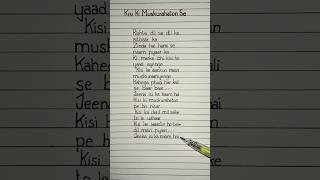 Kisi Ki Muskurahaton Se
Rishta dil se dil ke
aitbaar ka
Zinda hai hami se
naam pyaar ka
Ki marke bhi kisi ko
yaad aayenge
Kisi ke aansuon mein
muskurayenge
Kahega phool har kali
se baar baar
Jeena isi ka naam hai
Kisi ki muskurahaton
pe ho nisar
Kisi ka dard mil sake
to le udhaar
Kisi ke vaaste ho tere
dil mein pyaar
Jeena isi ka naam hai
yaad
Kisi
Kaheg
se
Jeena
Kisi
li
hai